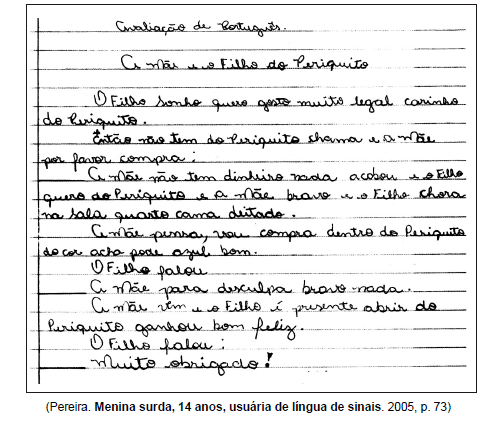 Avaliação de Português.
A Mãe e o Filho do Periquito
O Filho sonho quero gosto muito legal carinho
do Periquito.
Então não tem do Periquito chama e a Mãe
por favor compra:
A Mãe não tem dinheiro nada acabou e o Filho
quero do Periquito e a Mãe bravo e o Filho chora
na sala quarto cama deitado.
A Mãe pensa, vou compra dentro do Periquito
do cor acha pode azul bom.
O Filho falou
A Mãe para desculpa bravo nada.
A Mãe vem e o Filho é presente abrir do
Periquito ganhou bom feliz.
O Filho falou:
Muito obrigado!
(Pereira. Menina surda, 14 anos, usuária de língua de sinais. 2005, p. 73)